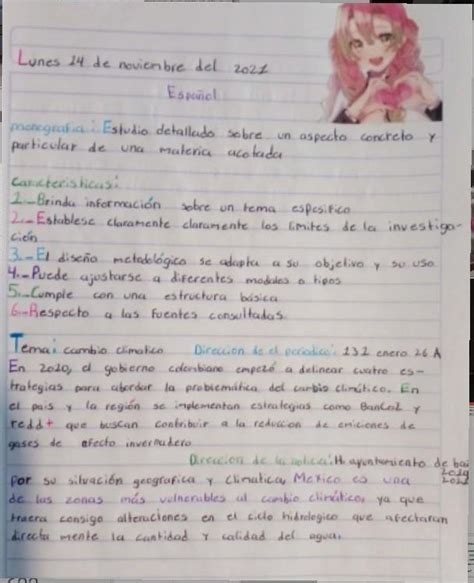 Lunes 14 de noviembre del 2021
Español
monografia: Estudio detallado sobre un aspecto concreto y
particular de una materia acotada
Caracteristicas:
1.-Brinda información sobre un tema espesifico
2.-Establese claramente claramente los limites de la investiga-
ción
3.-El diseño metodológico se adapta a su objetivo y su uso
4.-Puede ajustarse a diferentes modalos o tipos
5.-Cumple con una estructura básica
6.-Respecto a las fuentes consultadas
Tema: cambio climatico Direccion de el periodico: 132 enero 26 A
En 2020, el gobierno colombiano empezó a delinear cuatro es-
trategias para abordar la problemática del cambio climático. En
el pais y la región se implementan estrategias como BanCO2 y
redd+ que buscan contribuir a la reduccion de emiciones de
gases de efecto invernadero
Direccion de la noticia: H. ayuntamiento de
por su situación geografica y climatica, Mexico es una
de las zonas más vulnerables al cambio climático, ya que
traera consigo alteraciones en el ciclo hidrologico que afectaran
directa mente la cantidad y calidad del agua.